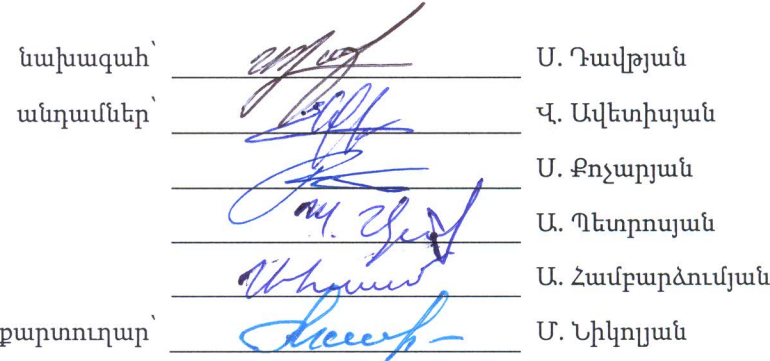 նախագահ՝ Ս. Դավթյան
անդամներ՝ Վ. Ավետիսյան
Ս. Քոչարյան
Ա. Պետրոսյան
Ա. Համբարձումյան
քարտուղար՝ Մ. Նիկոլյան